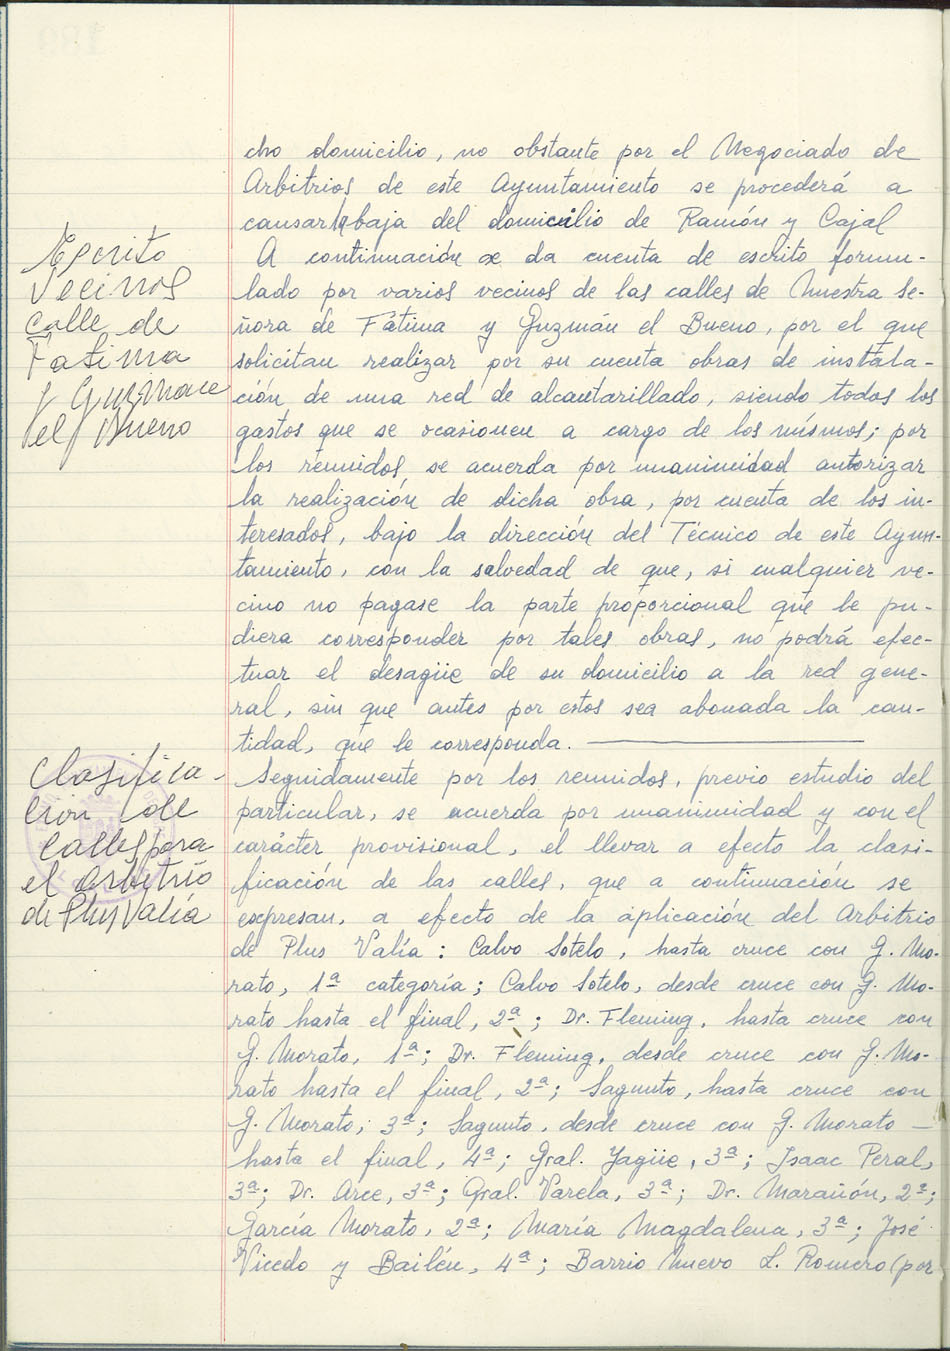 cho domicilio, no obstante por el Negociado de
Arbitrios de este Ayuntamiento se procederá a
causar la baja del domicilio de Ramón y Cajal
Escrito
Vecinos
calle de
Fatima
y Guzman
el Bueno
A continuación se da cuenta de escrito formu-
lado por varios vecinos de las calles de Nuestra Se-
ñora de Fátima y Guzmán el Bueno, por el que
solicitan realizar por su cuenta obras de instala-
ción de una red de alcantarillado, siendo todos los
gastos que se ocasionen a cargo de los mismos; por
los reunidos, se acuerda por unanimidad autorizar
la realización de dicha obra, por cuenta de los in-
teresados, bajo la dirección del Técnico de este Ayun-
tamiento, con la salvedad de que, si cualquier ve-
cino no pagase la parte proporcional que le pu-
diera corresponder por tales obras, no podrá efec-
tuar el desagüe de su domicilio a la red gene-
ral, sin que antes por estos sea abonada la can-
tidad, que le corresponda.
Clasifica-
ción de
Calles para
el Arbitrio
de Plus Valía
Seguidamente por los reunidos, previo estudio del
particular, se acuerda por unanimidad y con el
carácter provisional, el llevar a efecto la clasi-
ficación de las calles, que a continuación se
expresan, a efecto de la aplicación del Arbitrio
de Plus Valía: Calvo Sotelo, hasta cruce con G. Mo-
rato, 1ª categoría; Calvo Sotelo, desde cruce con G. Mo-
rato hasta el final, 2ª; Dr. Fleming, hasta cruce con
G. Morato, 1ª; Dr. Fleming, desde cruce con G. Mo-
rato hasta el final, 2ª; Sagunto, hasta cruce con
G. Morato, 3ª; Sagunto, desde cruce con G. Morato —
hasta el final, 4ª; Gral. Yagüe, 3ª; Isaac Peral,
3ª; Dr. Arce, 3ª; Gral. Varela, 3ª; Dr. Marañón, 2ª;
García Morato, 2ª; María Magdalena, 3ª; José
Vicedo y Bailén, 4ª; Barrio Nuevo L. Romero (por